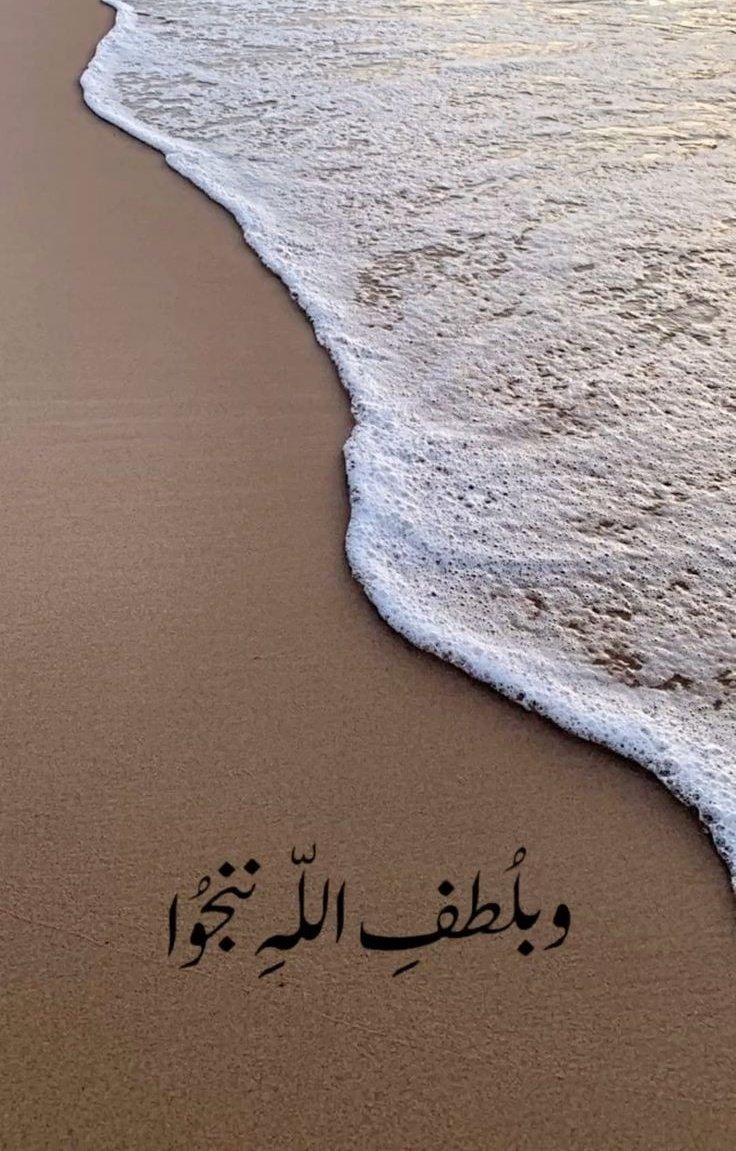 وبلُطفِ اللّهِ ننجُوا